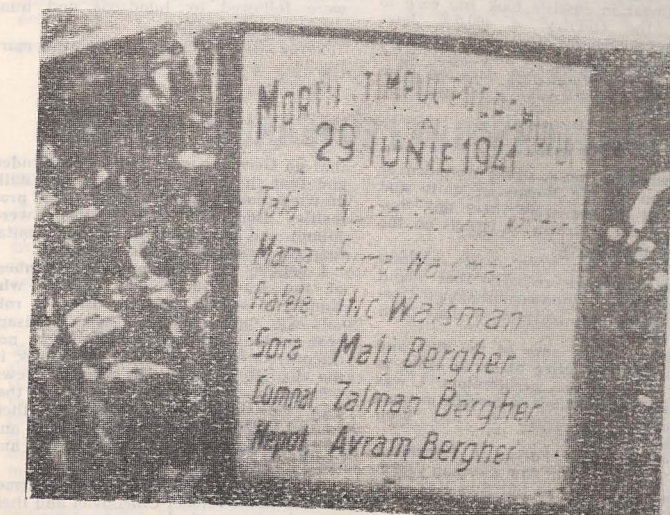 MORTI TIMPUL
29 IUNIE 1941
Tata
Mama Waisman
Fratele Itic Waisman
Sora Mali Bergher
Cumnat Zalman Bergher
Nepot Avram Bergher